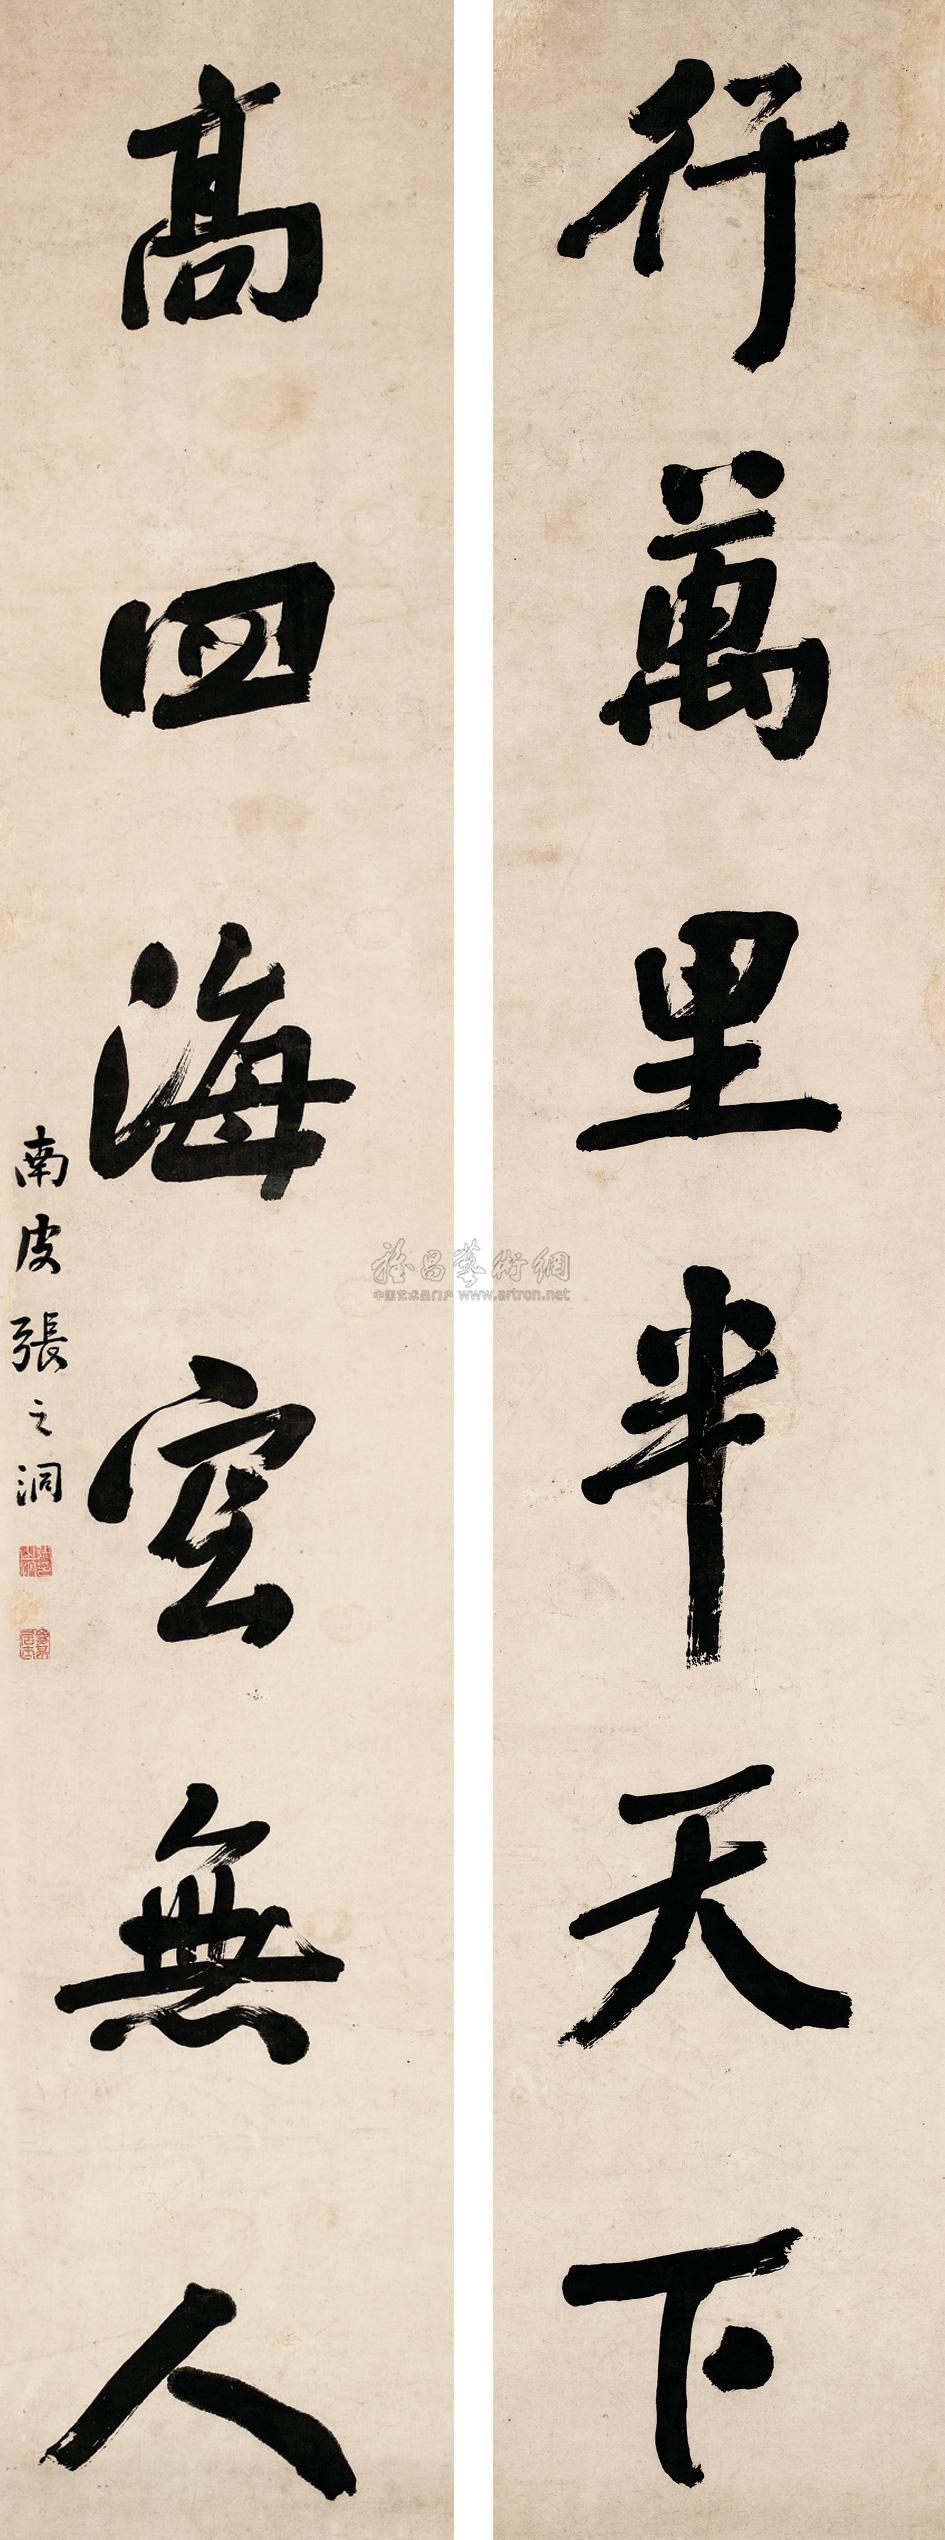 行萬里半天下
高四海空無人
南皮張之洞
雅昌藝術網
中国艺术品门户 www.artron.net